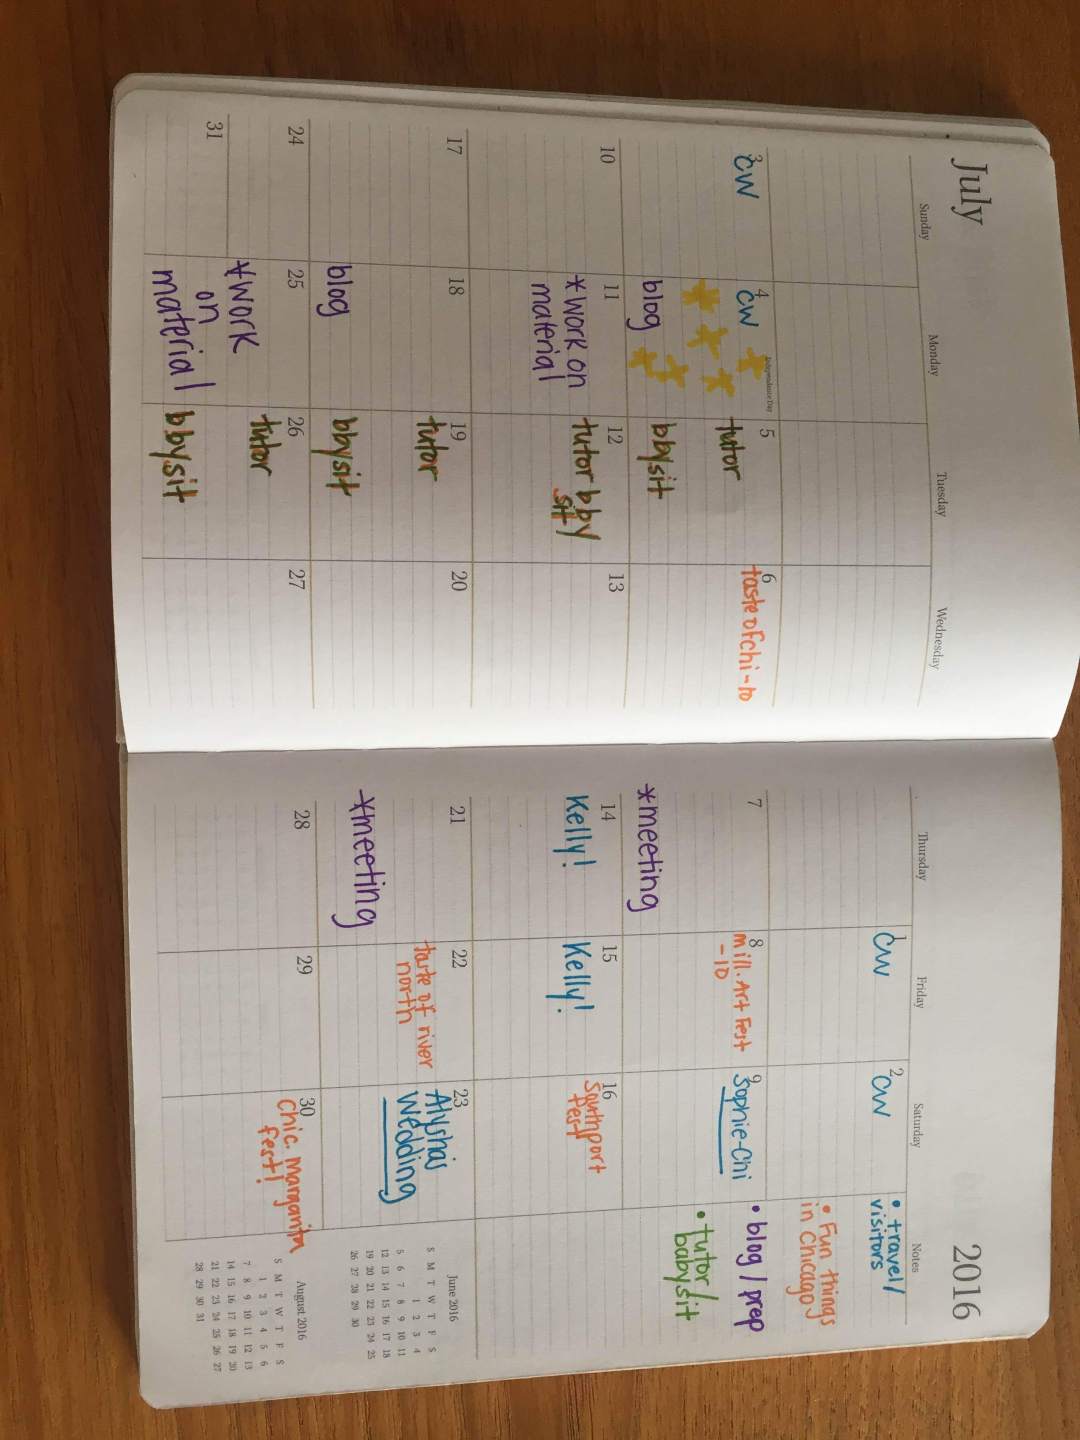 July
2016
Sunday
Monday
Tuesday
Wednesday
Thursday
Friday
Saturday
Notes
1
CW
2
CW
• travel/
visitors
• Fun things
in Chicago
• blog/prep
• tutor/
babysit
3
CW
4
Independence Day
CW
blog
5
tutor
bbysit
6
taste of chi-10
7
*meeting
8
mill. Art Fest
-10
9
Sophie-Chi
10
11
*work on
material
12
tutor bby
sit
13
14
Kelly!
15
Kelly!
16
Southport
Fest
17
18
blog
19
tutor
bbysit
20
21
*meeting
22
taste of river
north
23
Alysha's
Wedding
24
31
25
*work
on
material
26
tutor
bbysit
27
28
29
30
Chic. margarita
fest!
June 2016
S M T W T F S
1 2 3 4
5 6 7 8 9 10 11
12 13 14 15 16 17 18
19 20 21 22 23 24 25
26 27 28 29 30
August 2016
S M T W T F S
1 2 3 4 5 6
7 8 9 10 11 12 13
14 15 16 17 18 19 20
21 22 23 24 25 26 27
28 29 30 31